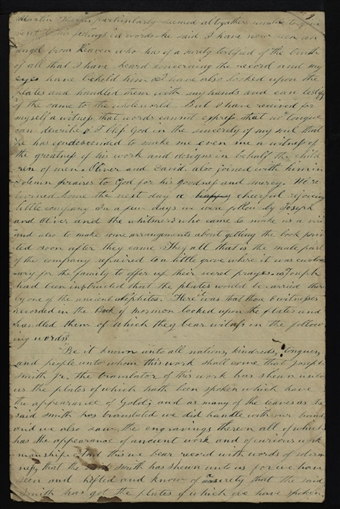 Martin Harris particularly seemed altogether unable to give
vent to his feelings in words he said I have now seen an
angel from Heaven who has of a surety testified of the truth
of all that I have heard concerning the record and my
eyes have beheld him I have also looked upon the
plates and handled them with my hands and can testify
of the same to the whole world But I have received for
myself a witness that words cannot express that no tongue
can describe & I bless God in the sincerity of my soul that
he has condescended to make me even me a witness of
the greatness of his work and designs in behalf of the child
ren of men Oliver and David also joined with him in
solemn praises to God for his goodness and mercy. We re
turned home the next day a cheerful rejoicing
little company In a few days we were followed by Joseph
and Oliver and the whitmers who came to make us a visit
and also to make some arrangements about getting the book prin
ted soon after they came They all that is the male part
of the company repaired to a little grove where it was custom
ary for the family to offer up their secret prayers. as Joseph
had been instructed that the plates would be carried there
by one of the ancient Nephites. Here it was that those 8 witnesses
recorded in the Book of Mormon looked upon the plates and
handled them of which they bear witness in the follow
ing words
Be it known unto all nations, kindreds, tongues,
and people unto whom this work shall come that Joseph
Smith Jr. the translator of this work has shewn unto
us the plates of which hath been spoken which have
the appearance of Gold; and as many of the leaves as the
said Smith has translated we did handle with our hands
and we also saw the engravings thereon all of which
has the appearance of ancient work and of curious work
manship. And this we bear record with words of sober
ness, that the said Smith has shewn unto us for we have
seen and hefted and know of a surety that the said
Smith has got the plates of which we have spoken